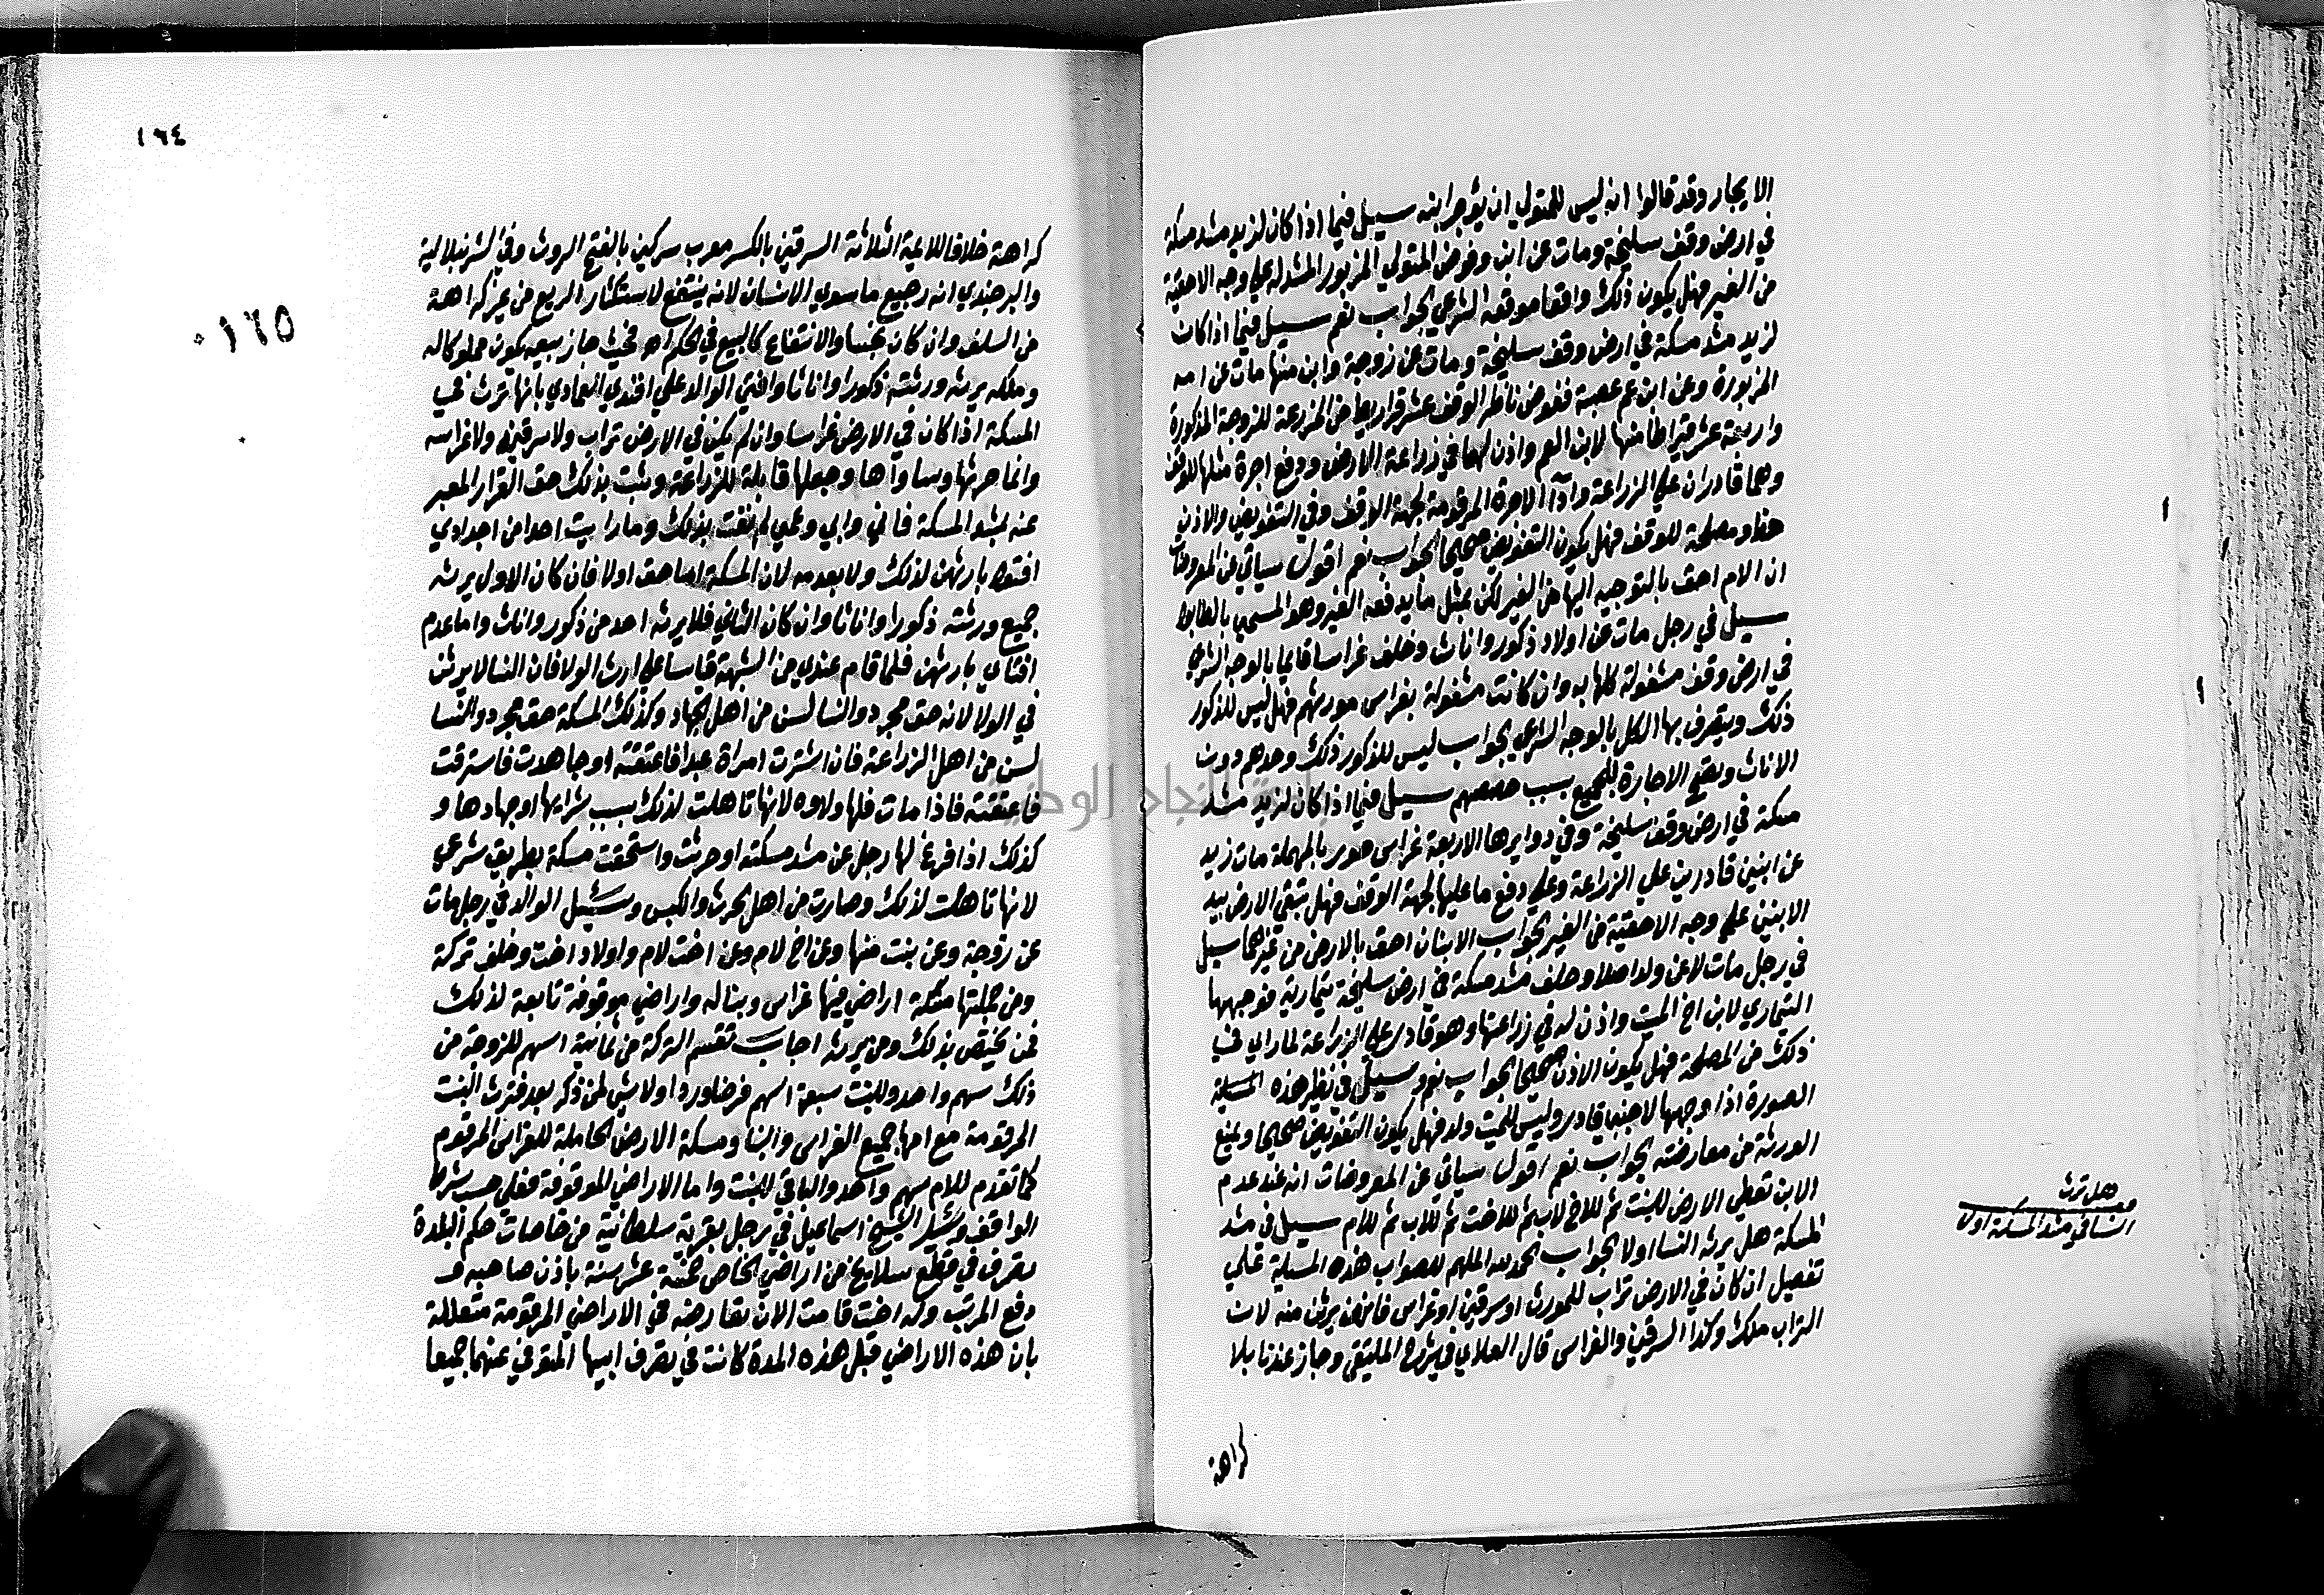 الايجار وقد قالوا انه ليس للمتولي ان يؤجر ابنه سيل فيما اذا كان لزيد مشد مسكة
في ارض وقف سليخة ومات عن ابن وفوض المتولي المزبور المشد له علي وجه الاحقية
من الغير فهل يكون ذلك واقعا موقعه الشرعي الجواب نعم سيل فيما اذا كان
لزيد مشد مسكة في ارض وقف سليخة ومات عن زوجة وابن منها مات عن امه
المزبورة وعن ابن عم عصبة ففوض ناظر الوقف عشر قراريط من المزرعة للزوجة المذكورة
واربعة عشر قيراطا منها لابن العم واذن لهما في زراعة الارض ودفع اجرة مثلها للوقف
وهما قادران علي الزراعة واداء الاجرة المرقومة لجهة الوقف وفي التفويض والاذن
حظ ومصلحة للوقف فهل يكون التفويض صحيحا الجواب نعم اقول سياتي عن المعروضات
ان الام احق بالتوجيه اليها من الغير لكن بمثل ما يدفعه الغير وهو المسمي بالطابو
سيل في رجل مات عن اولاد ذكور واناث وخلف غراسا قايما بالوجه الشرعي
في ارض وقف مشغولة كلها به وان كانت مشغولة بغراس مورثهم فهل ليس للذكور
ذلك ويتصرف بها الكل بالوجه الشرعي الجواب ليس للذكور ذلك وحدهم دون
الاناث وتصح الاجارة للجميع بحسب حصصهم سيل فيما اذا كان لزيد مشد
مسكة في ارض وقف سليخة وفي دوايرها الاربعة غراس حور بالمهملة مات زيد
عن ابنين قادرين علي الزراعة وعلي دفع ما عليها لجهة الوقف فهل تبقي الارض بيد
الابنين علي وجه الاحقية من الغير الجواب الابنان احق بالارض من غيرهما سيل
في رجل مات لا عن ولد اصلا وخلف مشد مسكة في ارض سليخة تيمارية فوجهها
التيماري لابن اخ الميت واذن له في زراعتها وهو قادر علي الزراعة لما راي في
ذلك من المصلحة فهل يكون الاذن صحيحا الجواب نعم وسيل في نظير هذه المسئلة
الصورة اذا وجهها لاجنبي قادر وليس للميت ولد فهل يكون التفويض صحيحا ويمنع
الورثة من معارضته الجواب نعم اقول سياتي عن المعروضات انه عند عدم
الابن تعطي الارض للبنت ثم للاخ لاب ثم للاخت ثم للاب ثم للام سيل في مشد
المسكة هل يرثه النسا اولا الجواب الحمد لله الملهم للصواب هذه المسئلة علي
تفصيل ان كان في الارض تراب للمورث او سرقين او غراس فانهن يرثن منه لان
التراب ملك وكذا السرقين والغراس قال العلاي في شرح الملتقي وجاز عندنا بلا
كراهة
هل ترث
النسا في مشد المسكة اولا
١٦٤
١٦٥
كراهة خلافا للايمة الثلاثة السرقين بالكسر معرب سركين بالفتح الروث وفي الشرنبلالية
والبرجندي انه رجيع ما سوي الانسان لانه ينتفع لاستكثار الريع من غير كراهة
من السلف وان كان نجسا والانتفاع كالبيع في الحكم اه فحيث جاز بيعه يكون مملوكا له
وملكه يرثه ورثته ذكورا واناثا وافتي الوالد علي افندي العمادي بانها ترث في
المسكة اذا كان في الارض غراسا وان لم يكن في الارض تراب ولا سرقين ولا غراسه
وانما حرثها وساواها وجعلها قابلة للزراعة وثبت بذلك حق القرار المعبر
عنه بمشد المسكة فاني وابي وعمي لم نفت بذلك وما رايت احدا من اجدادي
افتوا بارثهن لذلك ولا بعدمه لان المسكة اما حق اولا فان كان الاول يرثه
جميع ورثته ذكورا واناثا وان كان الثاني فلا يرثه احد من ذكور واناث واما عدم
افتاي بارثهن فلما قام عندي من الشبهة قياسا علي ارث الولا فان النسا لا يرثن
في الولا لانه حق مجرد والنسا لسن من اهل الجهاد وكذلك المسكة حق مجرد والنسا
لسن من اهل الزراعة فان اشترت امراة عبدا فاعتقته او جاهدت فاسترقت
فاعتقته فاذا مات فلها ولاوه لانها تاهلت لذلك بسبب شرائها او جهادها و
كذلك اذا فرغ لها رجل عن مشد مسكته او حرثت واستحقت مسكة بطريق شرعي
لانها تاهلت لذلك وصارت من اهل الحرث والكبس وسئيل الوالد في رجل مات
عن زوجة وعن بنت منها وعن اخ لام وعن اخت لام واولاد اخت وخلف تركة
ومن جملتها مسكة اراضي فيها غراس وبنا له واراضي موقوفة تابعة لذلك
فمن يختص بذلك ومن يرثه اجاب تقسم التركة من ثمانية اسهم للزوجة من
ذلك سهم واحد وللبنت سبعة اسهم فرضا وردا ولا شي لمن ذكر بعد فترث البنت
المرقومة مع امها جميع الغراس والبنا ومسكة الارض الحاملة للغراس المرقوم
كما تقدم للام سهم واحد والباقي للبنت واما الاراضي الموقوفة فعلي حسب شرط
الواقف وسئل الشيخ اسماعيل في رجل بقرية سلطانية من خاصات حكم البلدة
يتصرف في قطع سلايخ من اراضي الخاص خمسة عشر سنة باذن صاحبه و
دفع المرتب وله اخت قامت الان تعارضه في الاراضي المرقومة متعللة
بان هذه الاراضي قبل هذه المدة كانت في تصرف ابيها المتوفي عنهما جميعا